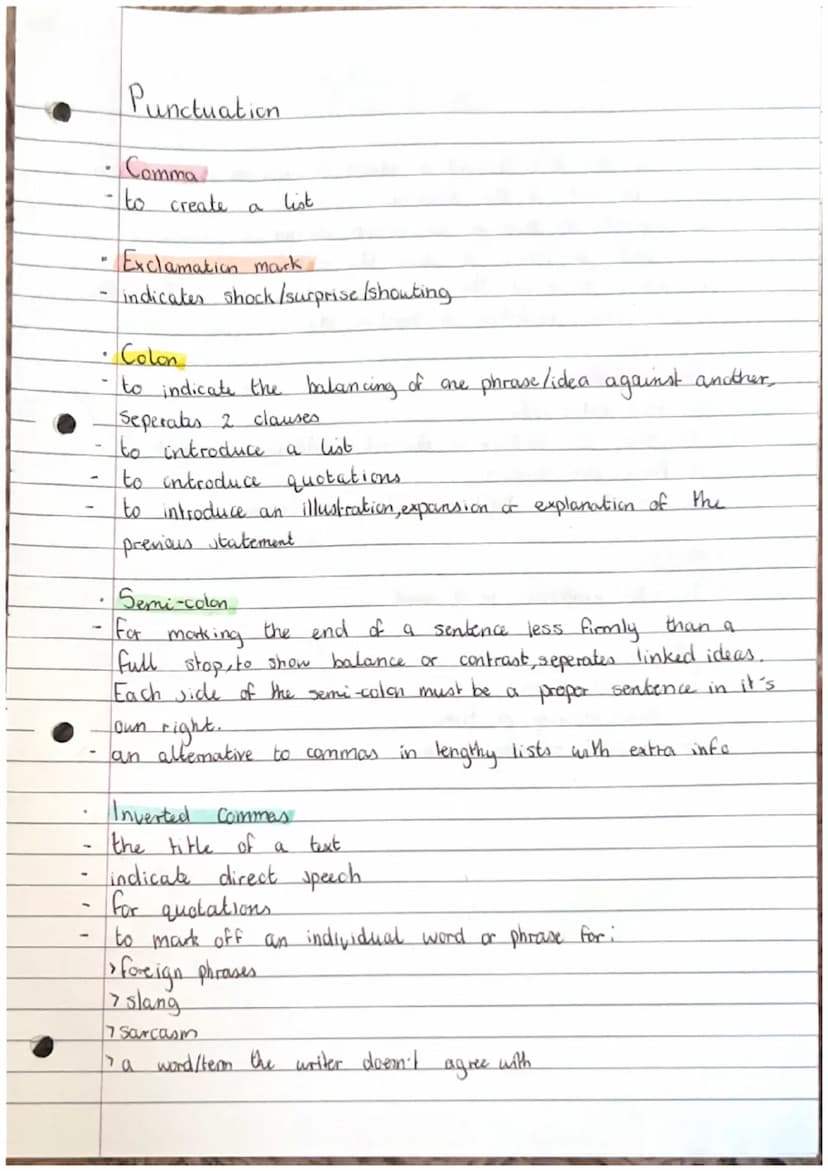 Punctuation
· Comma
- to create a list
· Exclamation mark
- indicates shock/surprise/shouting
· Colon
- to indicate the balancing of one phrase/idea against another,
seperates 2 clauses
- to introduce a list
- to introduce quotations
- to introduce an illustration, expansion or explanation of the
previous statement
· Semi-colon
- For marking the end of a sentence less firmly than a
full stop, to show balance or contrast, seperates linked ideas.
Each side of the semi-colon must be a proper sentence in it's
own right.
- an alternative to commas in lengthy lists with extra info
· Inverted Commas
- the title of a text
- indicate direct speech
- for quotations
- to mark off an individual word or phrase for:
> foreign phrases
> slang
> sarcasm
> a word/term the writer doesn't agree with